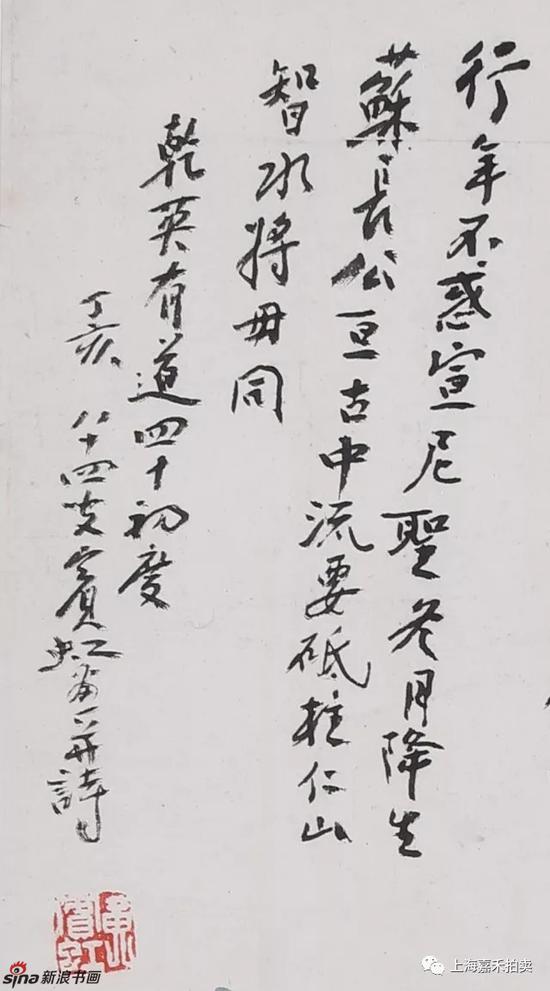 行年不惑宣尼聖冬月降生
蘇長公亘古中流要砥柱仁山
智水将毋同
乾英有道四十初度
丁亥八十四叟賓虹畫并詩
黃賓虹
sina新浪书画
上海嘉禾拍卖